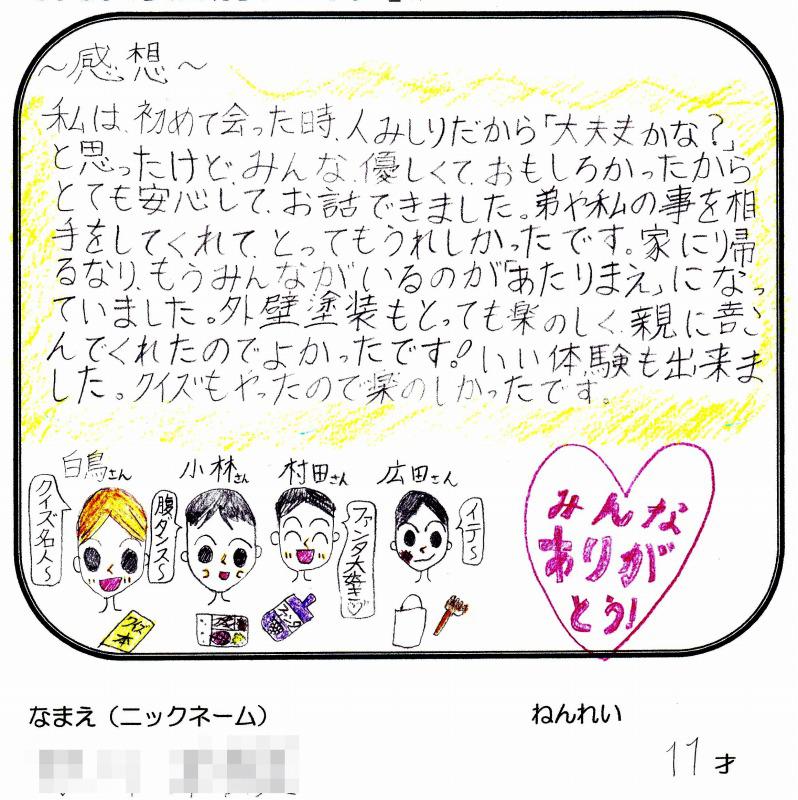 ～感想～
私は、初めて会った時、人みしりだから「大夫丈かな？」
と思ったけど、みんな、優しくて、おもしろかったから
とても安心して、お話できました。弟や私の事を相
手をしてくれて、とってもうれしかったです。家に帰
るなり、もうみんながいるのが「あたりまえ」になっ
ていました。外壁塗装もとっても楽のしく、親に喜こ
んでくれたのでよかったです！いい体験も出来ま
した。クイズもやったので楽のしかったです。
白鳥さん
小林さん
村田さん
広田さん
クイズ名人～
腹ダンス～
ファンタ大好き♡
イテ～
クイズ本
みんな
ありが
とう！
なまえ（ニックネーム）
ねんれい
11才